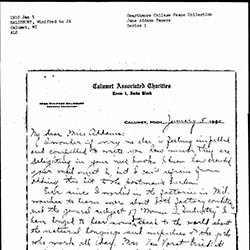 1910 Jan 5
SALISBURY, Winifred to JA
Calumet, MI
ALS
Swarthmore College Peace Collection
Jane Addams Papers
Series 1
Calumet Associated Charities
MISS WINIFRED SALSBURY
CALUMET, MICH. January 5 1910
My dear Miss Addams:
I wonder if every one else is feeling impelled
and compelled to write you how much they are
delighting in your new book. I know how crowded
your mail must be, but I can't refrain from
adding this bit to the postman's burden.
Ever since I worked in the factories in Mil-
waukee to learn more about factory conditions
and the general subject of "Women in Industry" I
have longed to hear
the natural longings and impulses of the girls
who work all day. Mrs Van Vorst